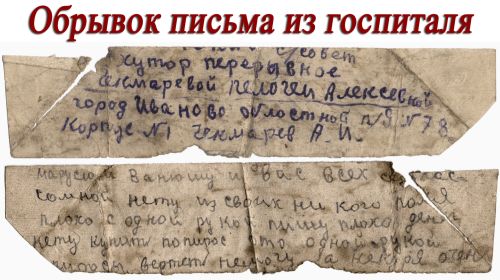 Обрывок письма из госпиталя
с/совет
хутор перерывное
Чекмаревой Пелогеи Алексевной
город Иваново областной п/я №78
Корпус №1 Чекмарев А. И.
марусюи Ванюшу и вас всех
сомной нету из своих ни кого
плохо с одной рукой пишу плохо денег
нету купить попирос что одной рукой
вертеть немогу а некгая